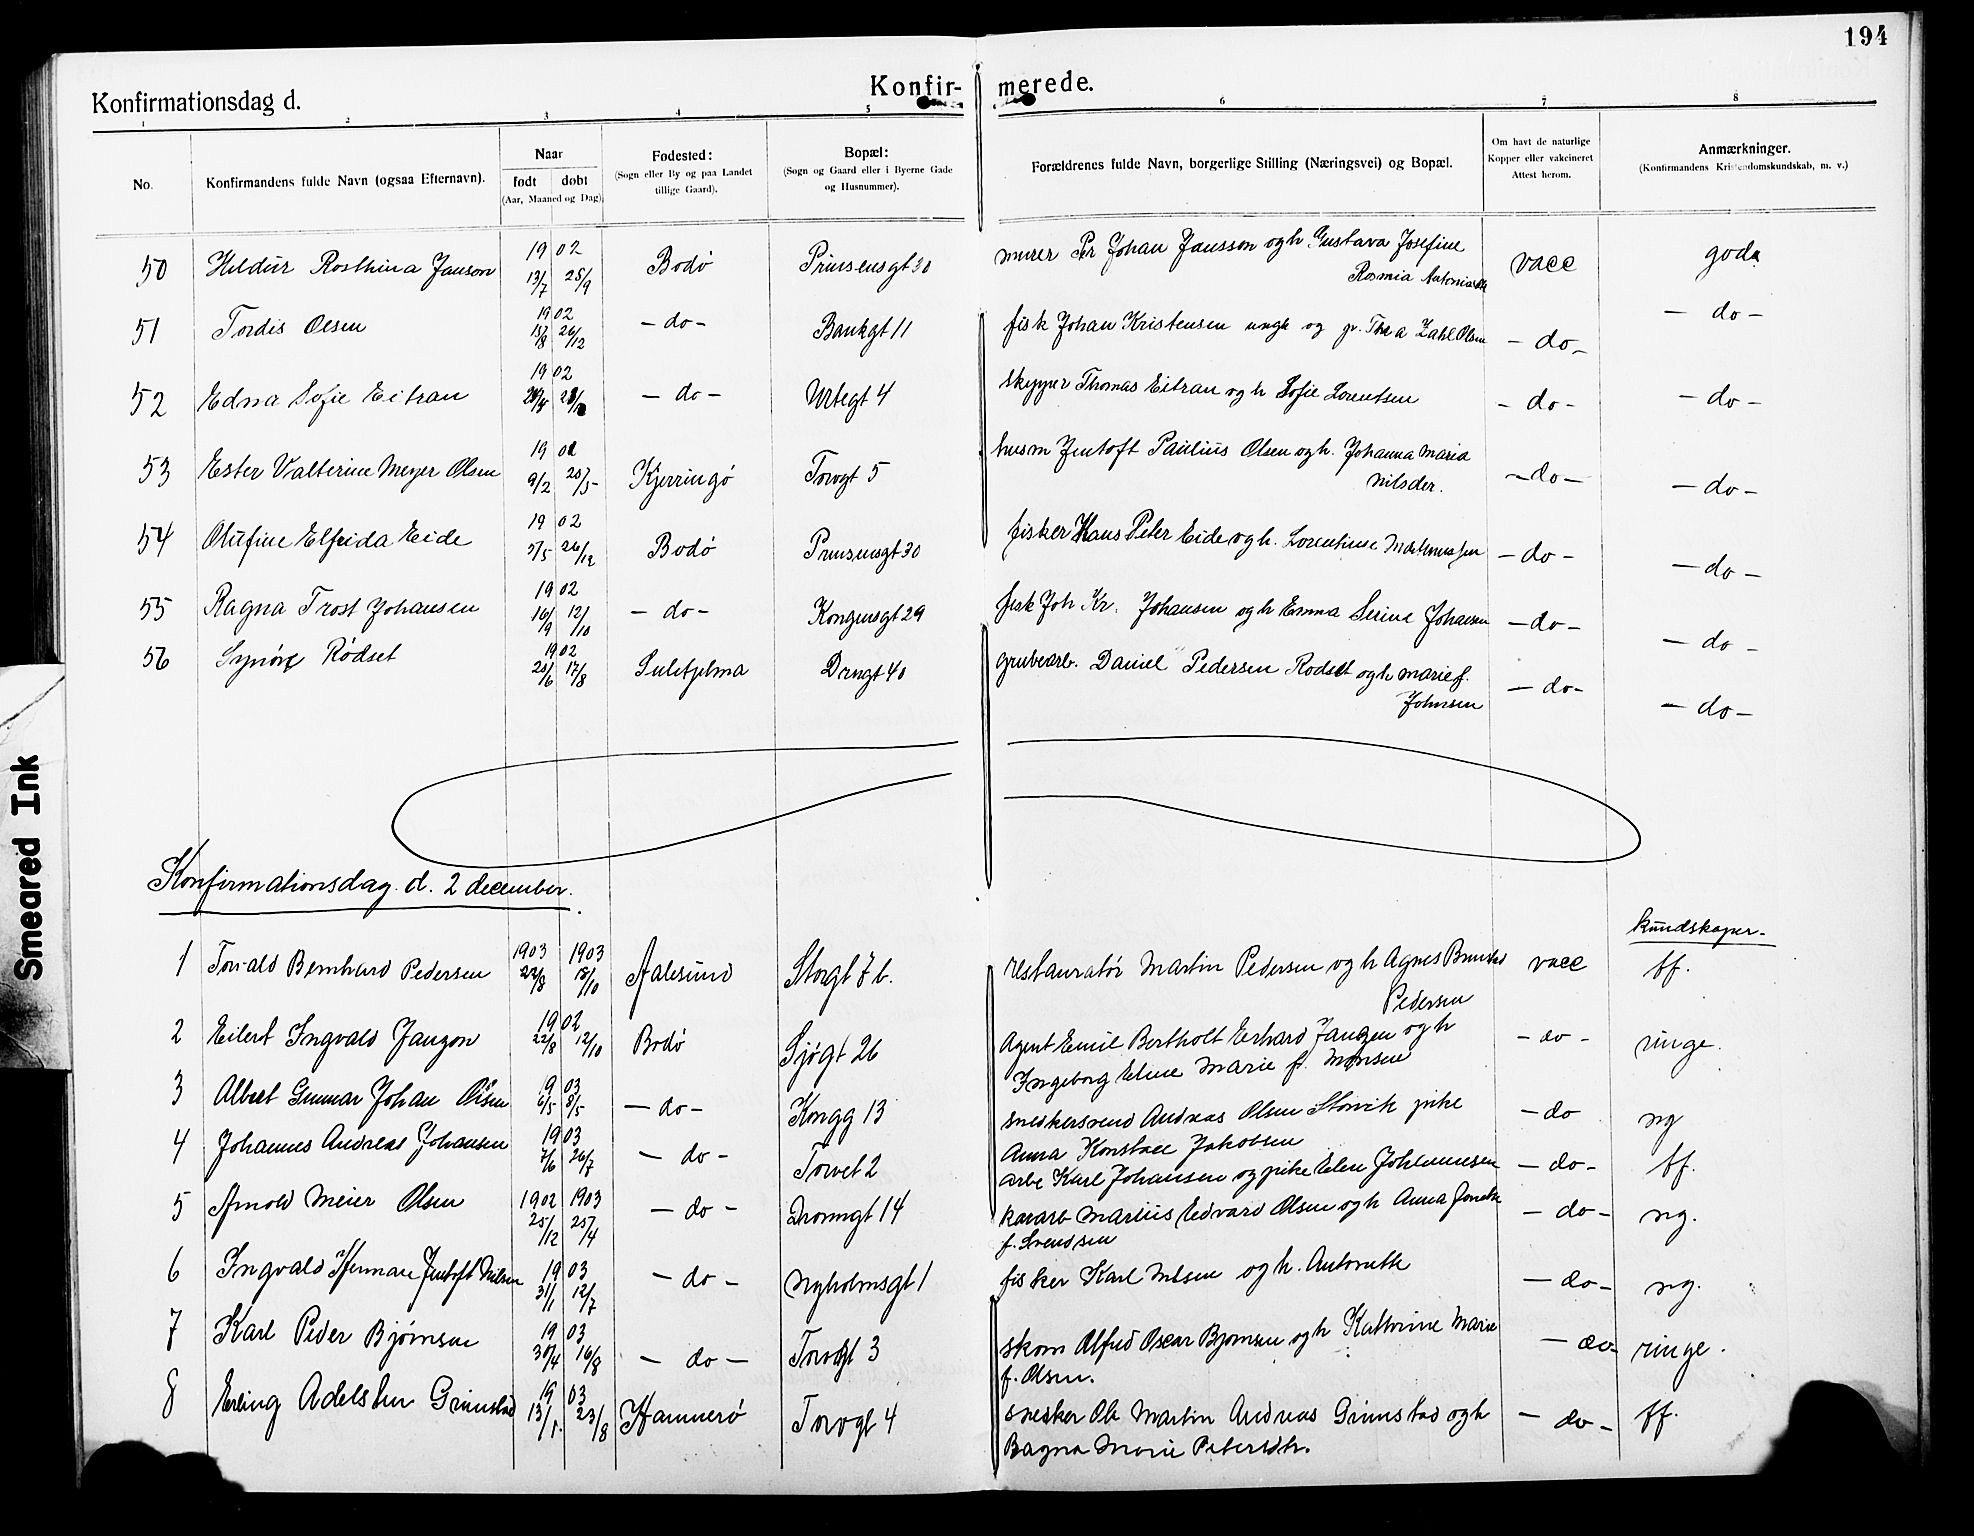 194
Konfirmationsdag d.
Konfir- merede.
1 2 3 4 5 6 7 8
No.
Konfirmandens fulde Navn (ogsaa Efternavn).
Naar
født døbt
(Aar, Maaned og Dag).
Fødested:
(Sogn eller By og paa Landet
tillige Gaard).
Bopæl:
(Sogn og Gaard eller i Byerne Gade
og Husnummer).
Forældrenes fulde Navn, borgerlige Stilling (Næringsvei) og Bopæl.
Om havt de naturlige
Kopper eller vakcineret
Attest herom.
Anmærkninger.
(Konfirmandens Kristendomskundskab, m. v.)
50 Hildur Rosthina Janson 1902 13/7 28/9 Bodø Prinsensgt 30 murer Per Johan Jansson og h Gustava Josefine vacc goda
Rosmia
51 Tordis Olsen 1902 26/12 - do - Bankgt 11 fisk Johan Kristensen unge og p. Thea Zahl Olsen - do - - do -
52 Edna Sofie Eitran 1902 - do - Urtegt 4 skypper Thomas Eitran og h Sofie Lorentsen - do - - do -
53 Ester Valterine Meyer Olsen 1902 9/2 25/5 Kjerringø Torvgt 5 husm Jentoft Paulius Olsen og h. Johanna Maria - do - - do -
Nilsder.
54 Olufine Elfrida Eide 1902 5/5 26/12 Bodø Prinsensgt 30 fisker Hans Peter Eide og h. Lorentine - do - - do -
55 Ragna Trost Johansen 1902 16/9 12/10 - do - Kongensgt 29 fisk Joh Kr. Johansen og h Emma Serine Johansen - do - - do -
56 Synøve Rødset 1902 25/6 17/8 Sulitjelma Drngt 40 grubearb. Daniel Pedersen Rodset og h Marie f. - do - - do -
Johnsen
Konfirmationsdag. d. 2 december.
kundskaper-
1 Torvald Bernhard Pedersen 1903 1903 22/8 18/10 Aalesund Storgt 7 b. restauratør Martin Pedersen og h Agnes vacc tf.
Pedersen
2 Eilert Ingvald Janzon 1902 22/8 12/10 Bodø Sjøgt 26 Agent Emil Bertholt Erhard Janzen og h - do - ringe.
Ingeborg Eline Marie f. Monsen
3 Albert Gunnar Johan Olsen 9 03 6/5 8/5 - do - Kongg 13 snedkersvend Andreas Olsen Storvik pike - do ng
Anna Konstace Jakobsen
4 Johannes Andreas Johansen 1903 7/6 26/7 - do - Torvet 2 arbe Karl Johansen og pike Elen Johannesen - do - tf.
5 Arnold Meier Olsen 1902 1903 25/12 25/4 - do - Dronngt 14 kaiarb Marius Edvard Olsen og h Anna - do - ng.
f. Svendsen
6 Ingvald Herman Jentoft Nilsen 1903 31/1 12/7 - do - Nyholmsgt 1 fisker Karl Nilsen og h. Antonette - do - ng.
7 Karl Peder Bjørnsen 1903 30/4 16/8 - do - Torvgt 3 skom Alfred Oscar Bjørnsen og h Kathrine Marie - do - ringe.
f. Olsen.
8 Erling Adelsten Grimstad 1903 13/1. 23/8 Hammerø Torvgt 4 snedker Ole Martin Andreas Grimstad og h - do - tf.
Ragna Marie Petersdtr.
Smeared Ink